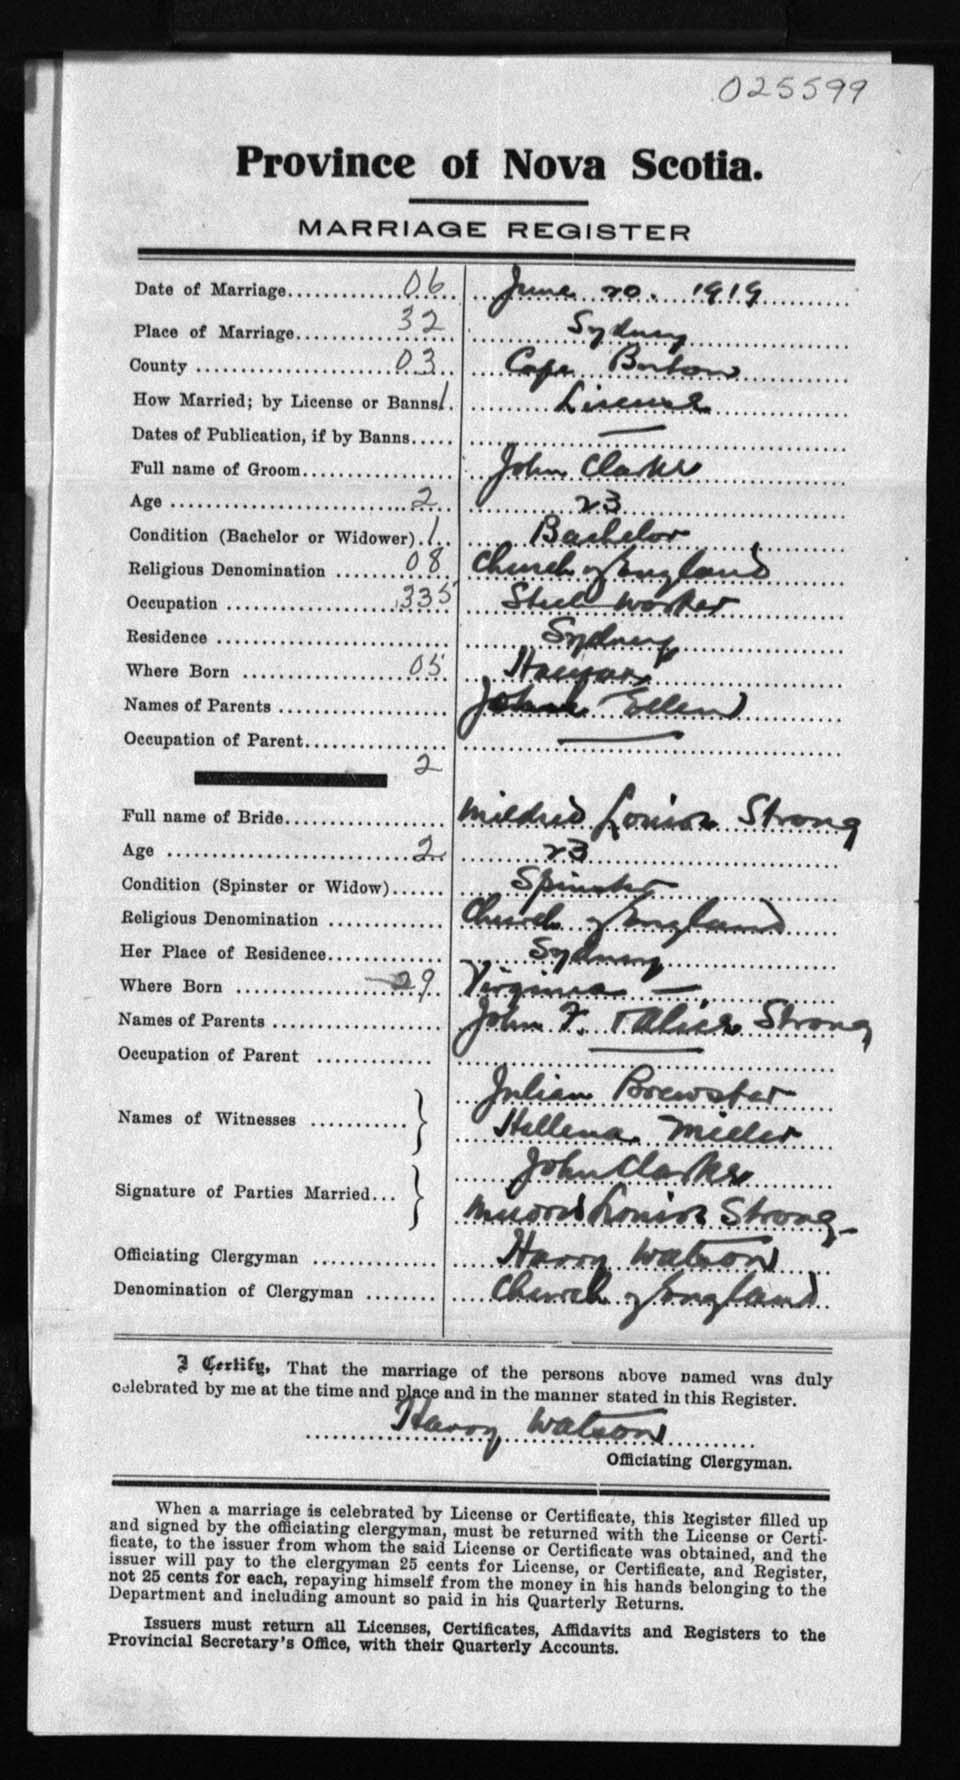 025599
Province of Nova Scotia.
MARRIAGE REGISTER
Date of Marriage 06 June 20. 1919
Place of Marriage 32 Sydney
County 03 Cape Breton
How Married; by License or Banns 1 License
Dates of Publication, if by Banns —
Full name of Groom John Clarke
Age 2 23
Condition (Bachelor or Widower) 1 Bachelor
Religious Denomination 08 Church of England
Occupation 335 Steel worker
Residence Sydney
Where Born 05 Halifax
Names of Parents Ellen
Occupation of Parent —
2
Full name of Bride Mildred Louise Strong
Age 2 23
Condition (Spinster or Widow) Spinster
Religious Denomination Church of England
Her Place of Residence Sydney
Where Born 29 Virginia —
Names of Parents John F. + Alice Strong
Occupation of Parent —
Names of Witnesses } Julian Brewster
Hellena Miller
Signature of Parties Married } John Clarke
Louise Strong
Officiating Clergyman Harry Watson
Denomination of Clergyman Church of England
I Certify, That the marriage of the persons above named was duly
celebrated by me at the time and place and in the manner stated in this Register.
Harry Watson
Officiating Clergyman.
When a marriage is celebrated by License or Certificate, this Register filled up
and signed by the officiating clergyman, must be returned with the License or Certi-
ficate, to the issuer from whom the said License or Certificate was obtained, and the
issuer will pay to the clergyman 25 cents for License, or Certificate, and Register,
not 25 cents for each, repaying himself from the money in his hands belonging to the
Department and including amount so paid in his Quarterly Returns.
Issuers must return all Licenses, Certificates, Affidavits and Registers to the
Provincial Secretary's Office, with their Quarterly Accounts.